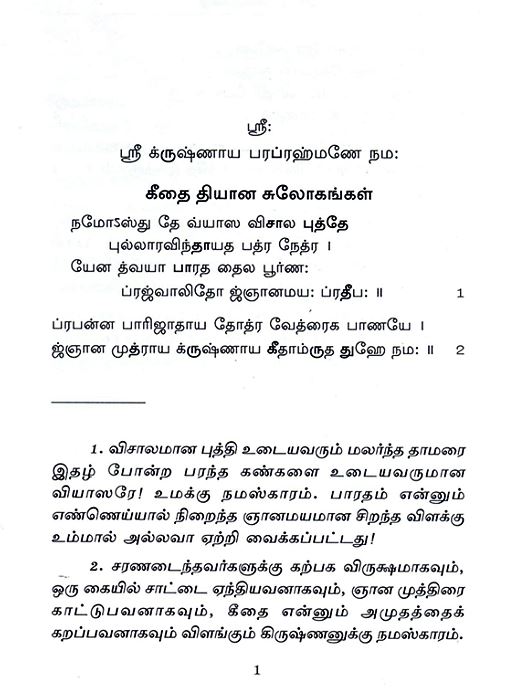 ஸ்ரீ:
ஸ்ரீ க்ருஷ்ணாய பரப்ரஹ்மணே நம:
கீதை தியான சுலோகங்கள்
நமோऽஸ்து தே வ்யாஸ விசால புத்தே
புல்லாரவிந்தாயத பத்ர நேத்ர ।
யேன த்வயா பாரத தைல பூர்ண:
ப்ரஜ்வாலிதோ ஜ்ஞானமய: ப்ரதீப: ॥ 1
ப்ரபன்ன பாரிஜாதாய தோத்ர வேத்ரைக பாணயே ।
ஜ்ஞான முத்ராய க்ருஷ்ணாய கீதாம்ருத துஹே நம: ॥ 2
1. விசாலமான புத்தி உடையவரும் மலர்ந்த தாமரை
இதழ் போன்ற பரந்த கண்களை உடையவருமான
வியாஸரே! உமக்கு நமஸ்காரம். பாரதம் என்னும்
எண்ணெய்யால் நிறைந்த ஞானமயமான சிறந்த விளக்கு
உம்மால் அல்லவா ஏற்றி வைக்கப்பட்டது!
2. சரணடைந்தவர்களுக்கு கற்பக விருக்ஷமாகவும்,
ஒரு கையில் சாட்டை ஏந்தியவனாகவும், ஞான முத்திரை
காட்டுபவனாகவும், கீதை என்னும் அமுதத்தைக்
கறப்பவனாகவும் விளங்கும் கிருஷ்ணனுக்கு நமஸ்காரம்.
1